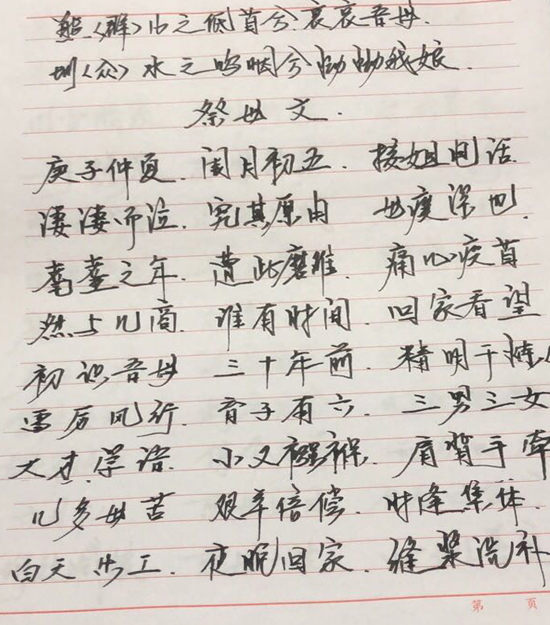 (群)山之低首兮哀哀吾母.
(众)水之呜咽兮恸恸我娘.
祭母文.
庚子仲夏.闰月初五.接姐电话.
凄凄而泣.究其原由 母废深也.
耄耋之年.遭此磨难.痛心疾首
然与儿商.谁有时间.回家看望
初识吾母 三十年前.精明干练.
雷厉风行.育子有六.三男三女
大才学语.小又襁褓.肩背手牵
几多母苦 艰辛倍偿.时逢集体.
白天出工.夜晚回家.缝浆洗补
第 页